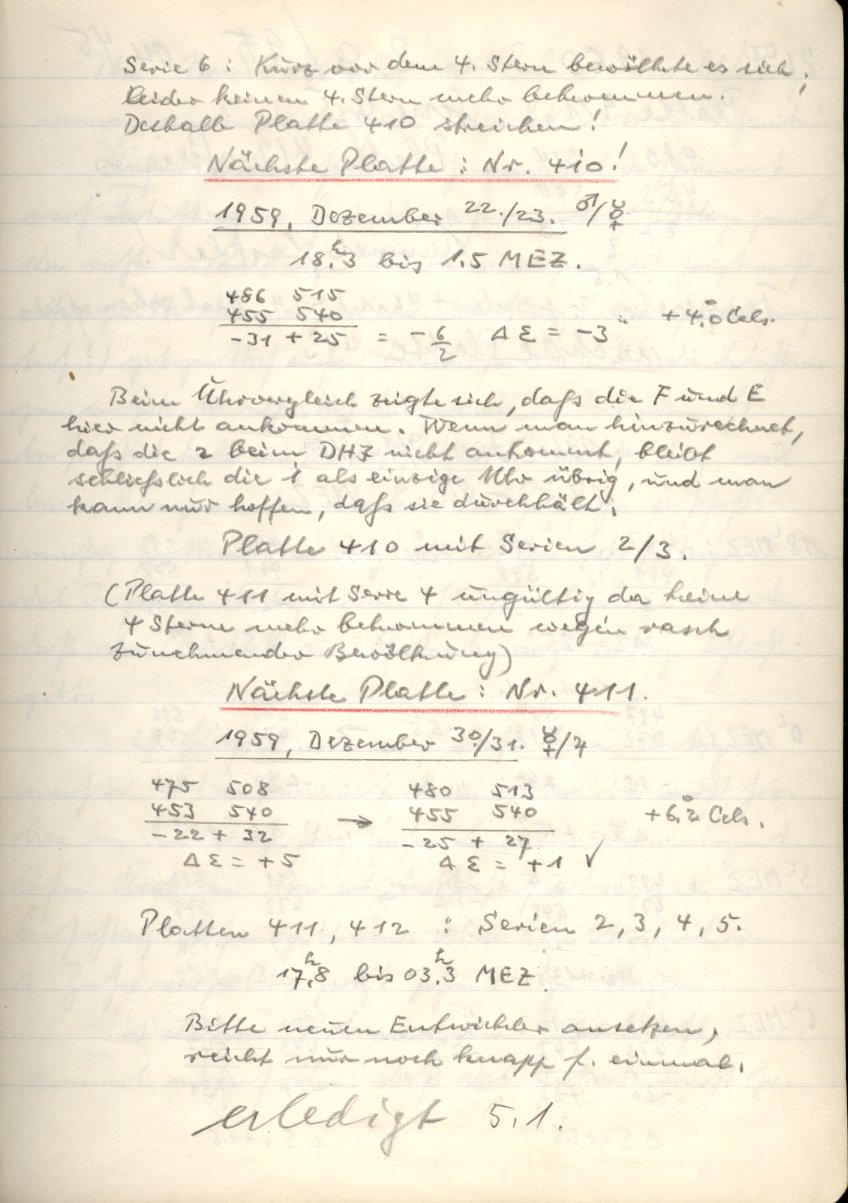 Serie 6: Kurz vor dem 4. Stern bewölkte es sich,
leider keinen 4. Stern mehr bekommen.
Deshalb Platte 410 streichen!
Nächste Platte: Nr. 410!
1959, Dezember 22./23. ♂/☿
18.ʰ3 bis 1.5 MEZ.
486 515
455 540
-31 + 25 = -6/2 Δ ε = -3 +4.°0 Cels.
Beim Uhrvergleich zeigte sich, daß die F und E
hier nicht ankommen. Wenn man hinzurechnet,
daß die 2 beim DHJ nicht ankommt, bleibt
schließlich die 1 als einzige Uhr übrig, und man
kann nur hoffen, daß sie durchhält.
Platte 410 mit Serien 2/3.
(Platte 411 mit Serie 4 ungültig da keine
4 Sterne mehr bekommen wegen rasch
zunehmender Bewölkung)
Nächste Platte: Nr. 411.
1959, Dezember 30/31. ☿/♃
475 508 480 513
453 540 → 455 540 +6.°2 Cels.
-22 + 32 -25 + 27
Δ ε = +5 Δ ε = +1 ✓
Platten 411, 412 : Serien 2, 3, 4, 5.
17.ʰ8 bis 03.ʰ3 MEZ
Bitte neuen Entwickler ansetzen,
reicht nur noch knapp f. einmal.
erledigt 5.1.